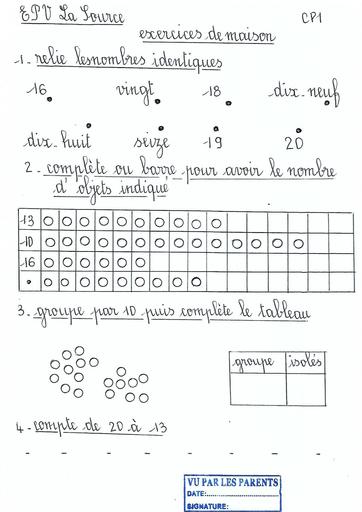 EPV La Source CP1
exercices de maison
1. relie les nombres identiques
16 vingt 18 dix-neuf
dix-huit seize 19 20
2. complète ou barre pour avoir le nombre
d'objets indiqué
13
10
16
3. groupe par 10 puis complète le tableau
groupe isolés
4. compte de 20 à 13
VU PAR LES PARENTS
DATE:
SIGNATURE: